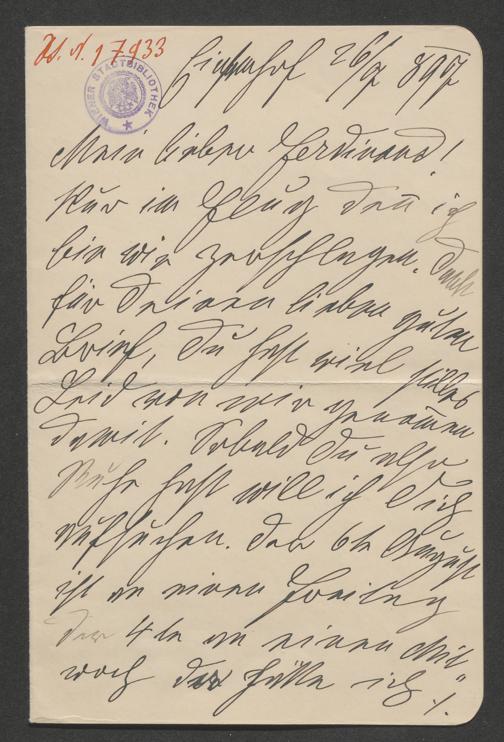 H. N. 17933
WIENER STADTBIBLIOTHEK
26/7 897
Mein lieber Ferdinand!
Nur im Flug den̄ ich
bin wie zerschlagen. Dank
für Deinen lieben guten
Brief, Du hast viel stilles
Leid von mir genom̄en
damit. Sobald Du also
Ruhe hast will ich Dich
aufsuchen. Der 6te August
ist an einem Freitag
der 4te an einem Mit-
woch da hätte ich